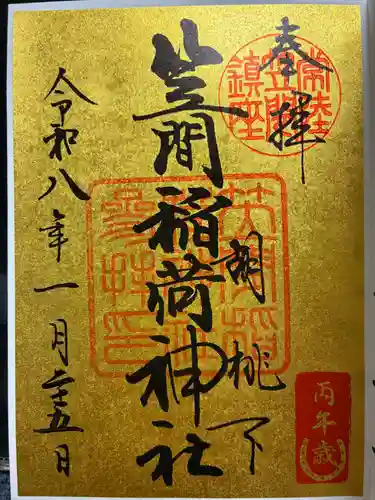 奉拝
常陸
笠間
鎮座
胡桃下
笠間稲荷神社
令和八年一月二十五日
丙午歳